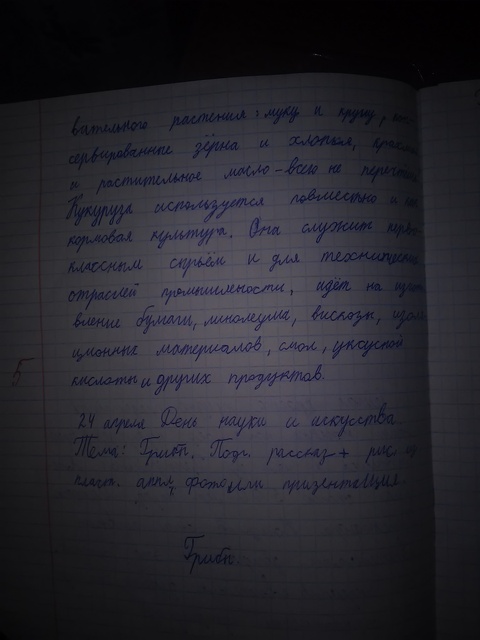 вительного растения: муку и крупу, кон-
сервированные зёрна и хлопья, крахмал
и растительное масло - всего не перечтёшь.
Кукуруза используется повместно и как
кормовая культура. Она служит перво-
классным сырьём и для технических
отраслей промышленности, идёт на изгото-
вление бумаги, линолеума, вискозы, изоля-
ционных материалов, смол, уксусной
кислоты и других продуктов.
5
24 апреля День науки и искусства
Тема: Грибы. Подг. рассказ + рис из
пласт. аппл, фото или призентация
Грибы.